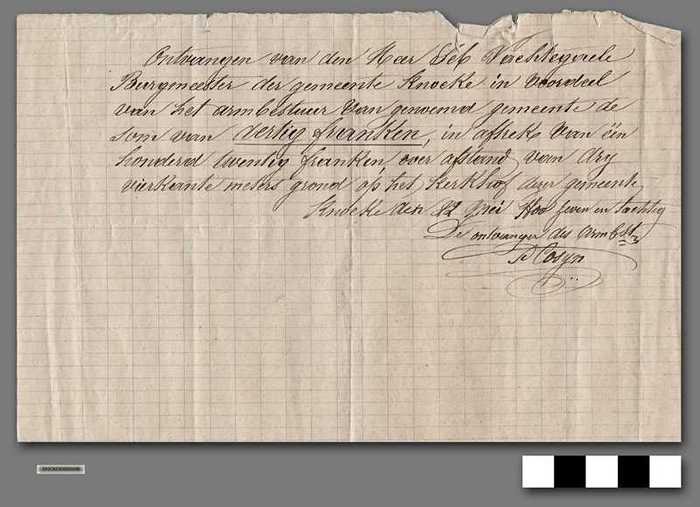 Ontvangen van den Heer Seb Nachtegaele
Burgmeester der gemeente Knocke in voordeel
van het armbestuur van genoemd gemeente de
som van dertig franken, in aftrek van één
honderd twentig franken over afstand van dry
vierkante meters grond op het kerkhof dezer gemeente
Knocke den 22 Mei 18 zeven en tachtig
De ontvanger des Armbest.
Cosyn